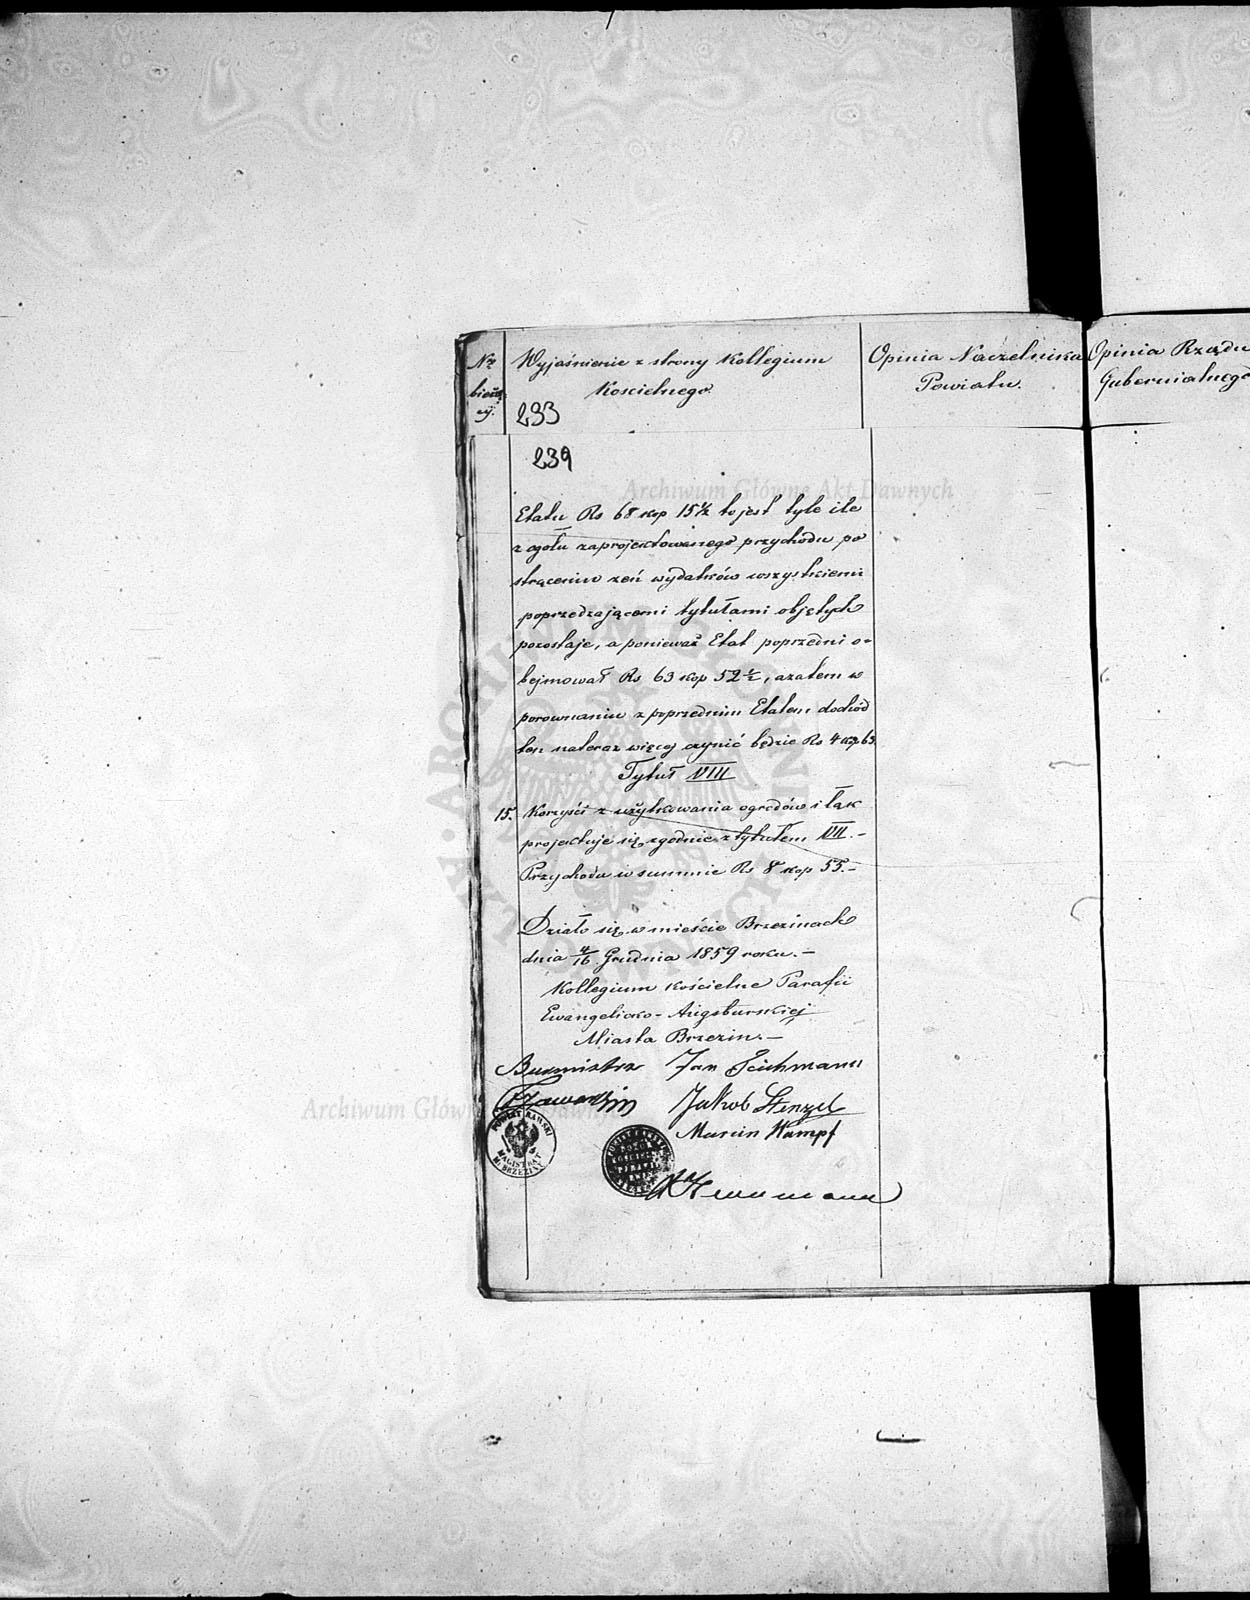 Nr
bieżą
cy.
Wyjaśnienie z strony Kollegium
Kościelnego.
Opinia Naczelnika
Powiatu.
Opinia Rządu
Gubernialnego
233
239
Etatu Rs 68 kop 15 1/2 to jest tyle ile
z ogółu zaprojektowanego przychodu po
strąceniu zeń wydatków wszystkiemi
poprzedzającemi tytułami objętych
pozostaje, a ponieważ Etat poprzedni o-
bejmował Rs 63 kop 52 1/2, azatem w
porownaniu z poprzednim Etatem dochód
ten nateraz więcej czynić będzie Rs 4 kop 63
Tytuł VIII
15. Korzyści z użytkowania ogrodów i łąk
projektuje się zgodnie z tytułem VII.-
Przychodu w summie Rs 8 kop 55.-
Działo się w mieście Brzezinach
dnia 4/16 Grudnia 1859 roku.-
Kollegium kościelne Parafii
Ewangelicko-Augsburskiej
Miasta Brzezin.-
Burmistrz
Jan
Jakób Stenzel
Marcin Kampf
POWIAT RAWSKI
MAGISTRAT
M. BRZEZINY
Archiwum Główne Akt Dawnych
Archiwum Główne Akt Dawnych
ARCHIWUM GŁÓWNE AKT DAWNYCH